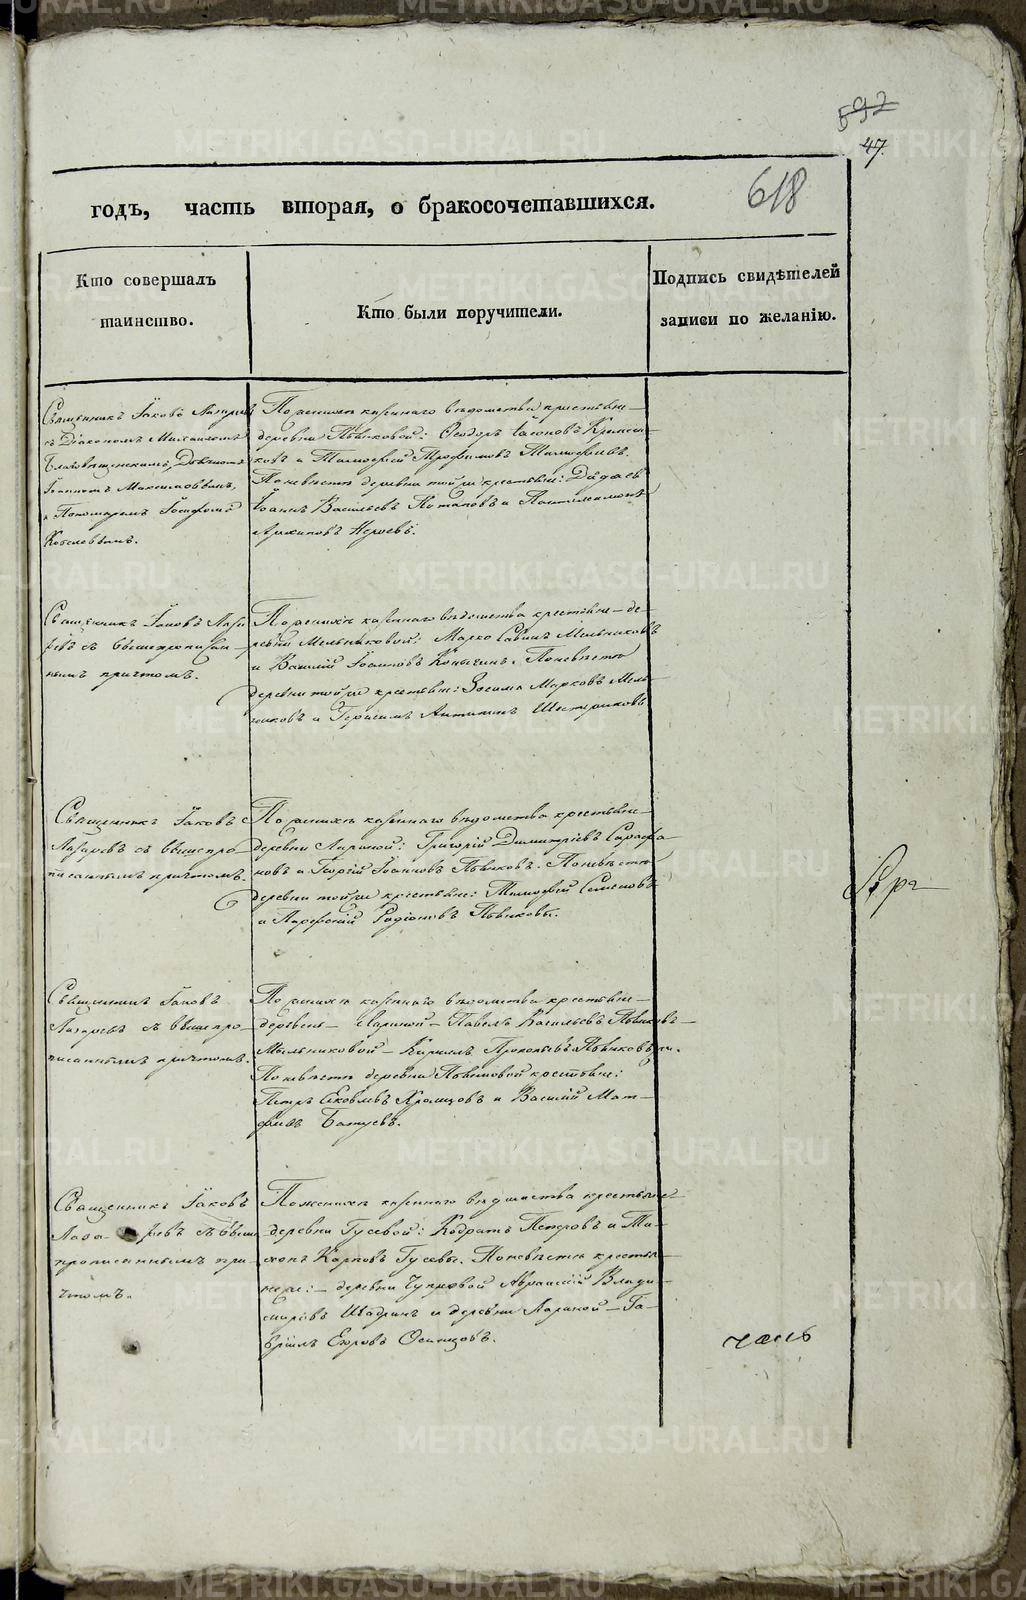 592
47.
618
годъ, часть вторая, о бракосочетавшихся.
Кто совершалъ
таинство.
Кто были поручители.
Подпись свидѣтелей
записи по желанію.
Священникъ Іаковъ Лазаревъ
съ Діакономъ Михаиломъ
Благовѣщенскимъ, Дьячкомъ
Максимовымъ,
и Пономаремъ Іосифомъ
По женихѣ казеннаго вѣдомства крестьяне
деревни Пьянковой: Ѳеодоръ
и Тимоѳей Трофимовъ
По невѣстѣ деревни той же крестьяне:
Іоаннъ Васильевъ Потаповъ и Пантелеимонъ
Архиповъ
Священникъ Іаковъ Лаза-
ревъ съ вышепрописан-
нымъ причтомъ.
По женихѣ казеннаго вѣдомства крестьяне де-
ревни Мельниковой: Марко Савинъ Мельниковъ
и Василій Іоанновъ По невѣстѣ
деревни той же крестьяне: Зосима Марковъ Мель-
никовъ и Герасимъ Шестериковъ
Священникъ Іаковъ
Лазаревъ съ вышепро-
писаннымъ причтомъ.
По женихѣ казеннаго вѣдомства крестьяне
деревни Лариной: Григорій Димитріевъ Сарафа-
новъ и Георгій Іоанновъ Пьянковъ. По невѣстѣ
деревни той же крестьяне: Тимоѳей Семеновъ
и Родіоновъ Пьянковы.
Священникъ Іаковъ
Лазаревъ съ вышепро-
писаннымъ причтомъ.
По женихѣ казеннаго вѣдомства крестьяне
деревень Лариной Павелъ Васильевъ Пьянковъ
Мельниковой Кириллъ Прокопьевъ Пьянковы.
По невѣстѣ деревни Пьянковой крестьяне:
Петръ Яковлевъ Храмцовъ и Василій Мат-
Священникъ Іаковъ
Лаза- ревъ съ выше
прописаннымъ при-
чтомъ.
По женихѣ казеннаго вѣдомства крестьяне
деревни Гусевой: Кодратъ Петровъ и Ти-
хонъ Карповъ Гусевы. По невѣстѣ крестья-
не: деревни Авраамій Влади-
мировъ Шадринъ и деревни Лариной Га-
вріилъ Егоровъ Осинцовъ.
часть